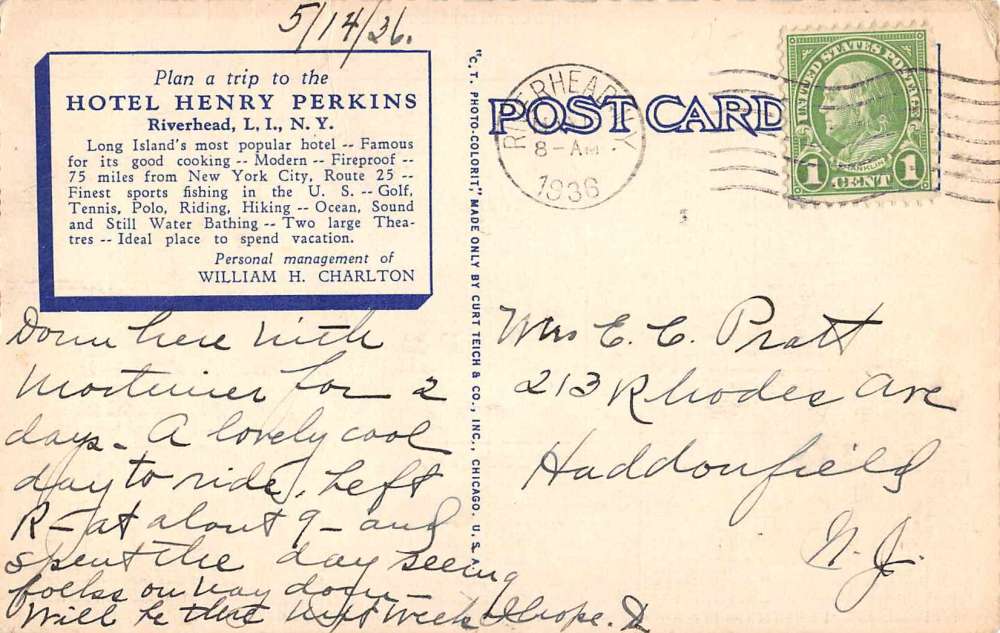 5/14/36.
Plan a trip to the
HOTEL HENRY PERKINS
Riverhead, L. I., N. Y.
Long Island's most popular hotel -- Famous
for its good cooking -- Modern -- Fireproof --
75 miles from New York City, Route 25 --
Finest sports fishing in the U. S. -- Golf,
Tennis, Polo, Riding, Hiking -- Ocean, Sound
and Still Water Bathing -- Two large Thea-
tres -- Ideal place to spend vacation.
Personal management of
WILLIAM H. CHARLTON
Down here with
Mortimer for 2
days - A lovely cool
day to ride. Left
R - at about 9 - and
spent the day seeing
folks on way down -
Will be there next week I hope. D
"C. T. PHOTO-COLORIT," MADE ONLY BY CURT TEICH & CO., INC., CHICAGO, U. S. A.
POST CARD
RIVERHEAD N Y
8-AM
1936
UNITED STATES POSTAGE
FRANKLIN
1 CENT 1
Mrs E. C. Pratt
213 Rhodes Ave
Haddonfield
N. J.